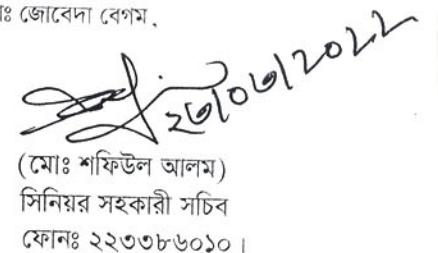 ঃ জোবেদা বেগম,
২৩/০৩/২০২২
(মোঃ শফিউল আলম)
সিনিয়র সহকারী সচিব
ফোনঃ ২২৩৩৮৬০১০।